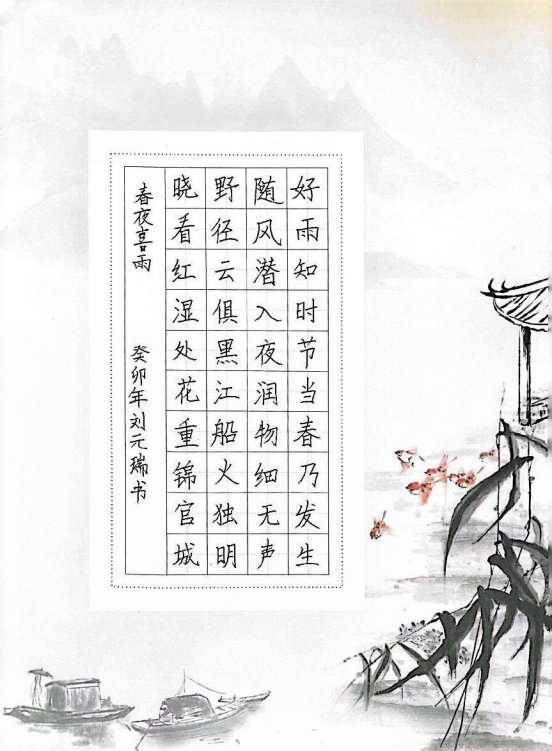 好雨知时节当春乃发生
随风潜入夜润物细无声
野径云俱黑江船火独明
晓看红湿处花重锦官城
春夜喜雨
癸卯年刘元瑞书